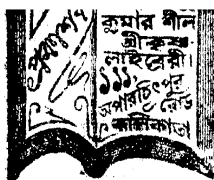 কুমার শীল
শ্রীকৃষ্ণ
লাইব্রেরী।
১১১,
অপারচিৎপুর
রোড
কলিকাতা